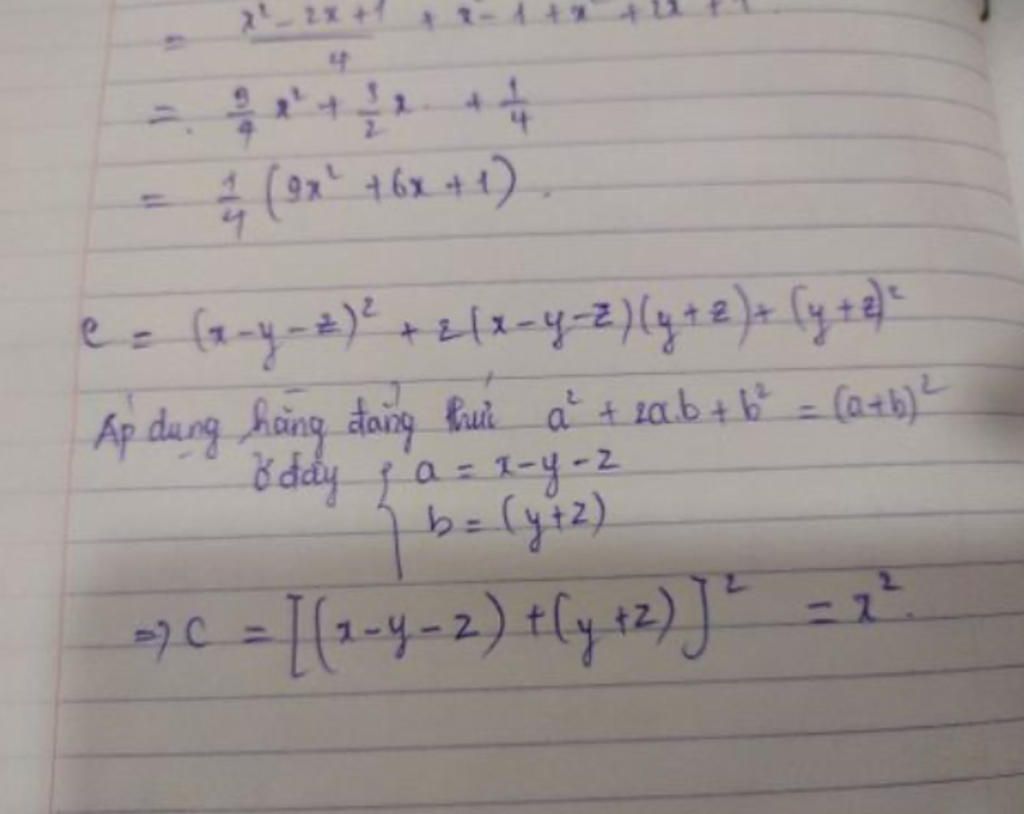 = x² - 2x + 1 / 4 + x² - 1 + x² + 2x + 1
= 9/4 x² + 3/2 x + 1/4
= 1/4 (9x² + 6x + 1).
C = (x-y-z)² + 2(x-y-z)(y+z) + (y+z)²
Áp dụng hằng đẳng thức a² + 2ab + b² = (a+b)²
ở đây { a = x-y-z
b = (y+z)
=> C = [(x-y-z) + (y+z)]² = x².